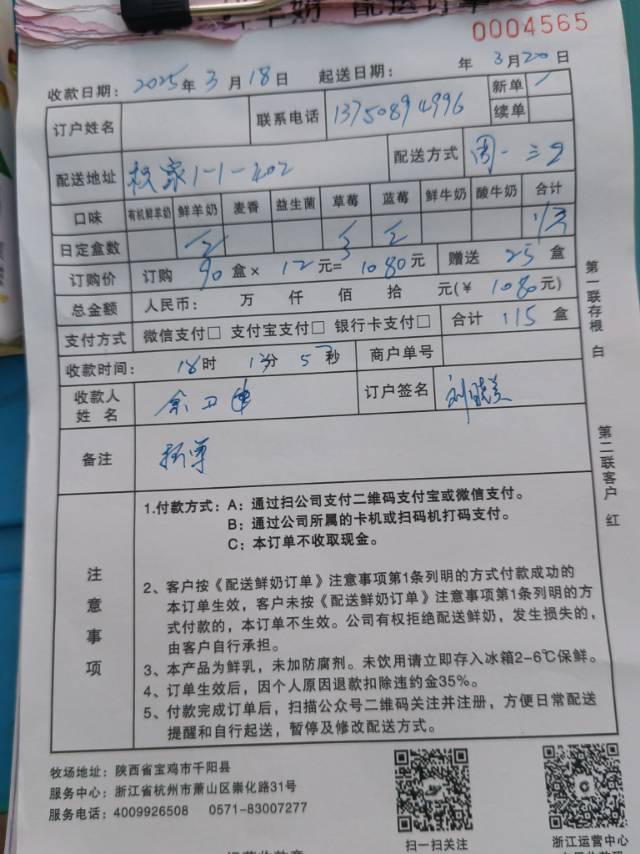 鲜羊奶 配送订单
0004565
收款日期：2025年3月18日 起送日期： 年3月20日
订户姓名 联系电话 13750894996 新单 /
续单
配送地址 1-1-202 配送方式 周一三
口味 有机鲜羊奶 鲜羊奶 麦香 益生菌 草莓 蓝莓 鲜牛奶 酸牛奶 合计
日定盒数
订购价 订购 90 盒× 12 元= 1080 元 赠送 25 盒
总金额 人民币： 万 仟 佰 拾 元(￥ 1080 元)
支付方式 微信支付□ 支付宝支付□ 银行卡支付□ 合计 115 盒
收款时间： 18时 分 秒 商户单号
收款人
姓 名 订户签名
备注
注意事项
1.付款方式：A：通过扫公司支付二维码支付宝或微信支付。
B：通过公司所属的卡机或扫码机打码支付。
C：本订单不收取现金。
2、客户按《配送鲜奶订单》注意事项第1条列明的方式付款成功的
本订单生效，客户未按《配送鲜奶订单》注意事项第1条列明的方
式付款的，本订单不生效。公司有权拒绝配送鲜奶，发生损失的，
由客户自行承担。
3、本产品为鲜乳，未加防腐剂。未饮用请立即存入冰箱2-6℃保鲜。
4、订单生效后，因个人原因退款扣除违约金35%。
5、付款完成订单后，扫描公众号二维码关注并注册，方便日常配送
提醒和自行起送，暂停及修改配送方式。
第一联存根 白
第二联客户 红
牧场地址：陕西省宝鸡市千阳县
服务中心：浙江省杭州市萧山区崇化路31号
服务电话：4009926508 0571-83007277
扫一扫关注
浙江运营中心